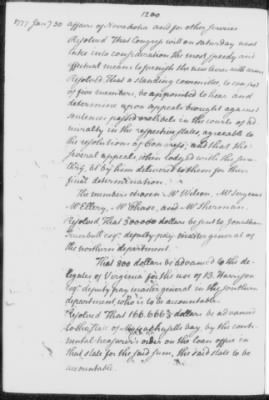 1200
1777 Jany 30 affairs of Novascotia and for other services
Resolved That Congress will on Saturday next
take into consideration the most speedy and
effectual means to furnish the new levies with arms
Resolved That a standing committee, to consist
of five members, be appointed to hear and
determine upon appeals brought against
sentences passed on libels in the courts of ad
miralty in the respective states, agreeable to
the resolutions of Congress; and that the
several appeals, when lodged with the secre
tary, be by him delivered to them for their
final determination.
The members chosen Mr Wilson, Mr Serjeant
Mr Ellery, Mr Chase, and Mr Sherman.
Resolved That 300000 dollars be sent to Jonathan
Trumbull esqr deputy pay master general of
the northern department.
That 900 dollars be advanced to the de-
legates of Virginia for the use of B. Harrison
esqr deputy pay master general in the southern
department, who is to be accountable.
Resolved That 166,666⅔ dollars be advanced
to the state of Massachusetts bay by the conti-
nental treasurer's order on the loan office in
that state for the said sum, the said state to be
accountable.